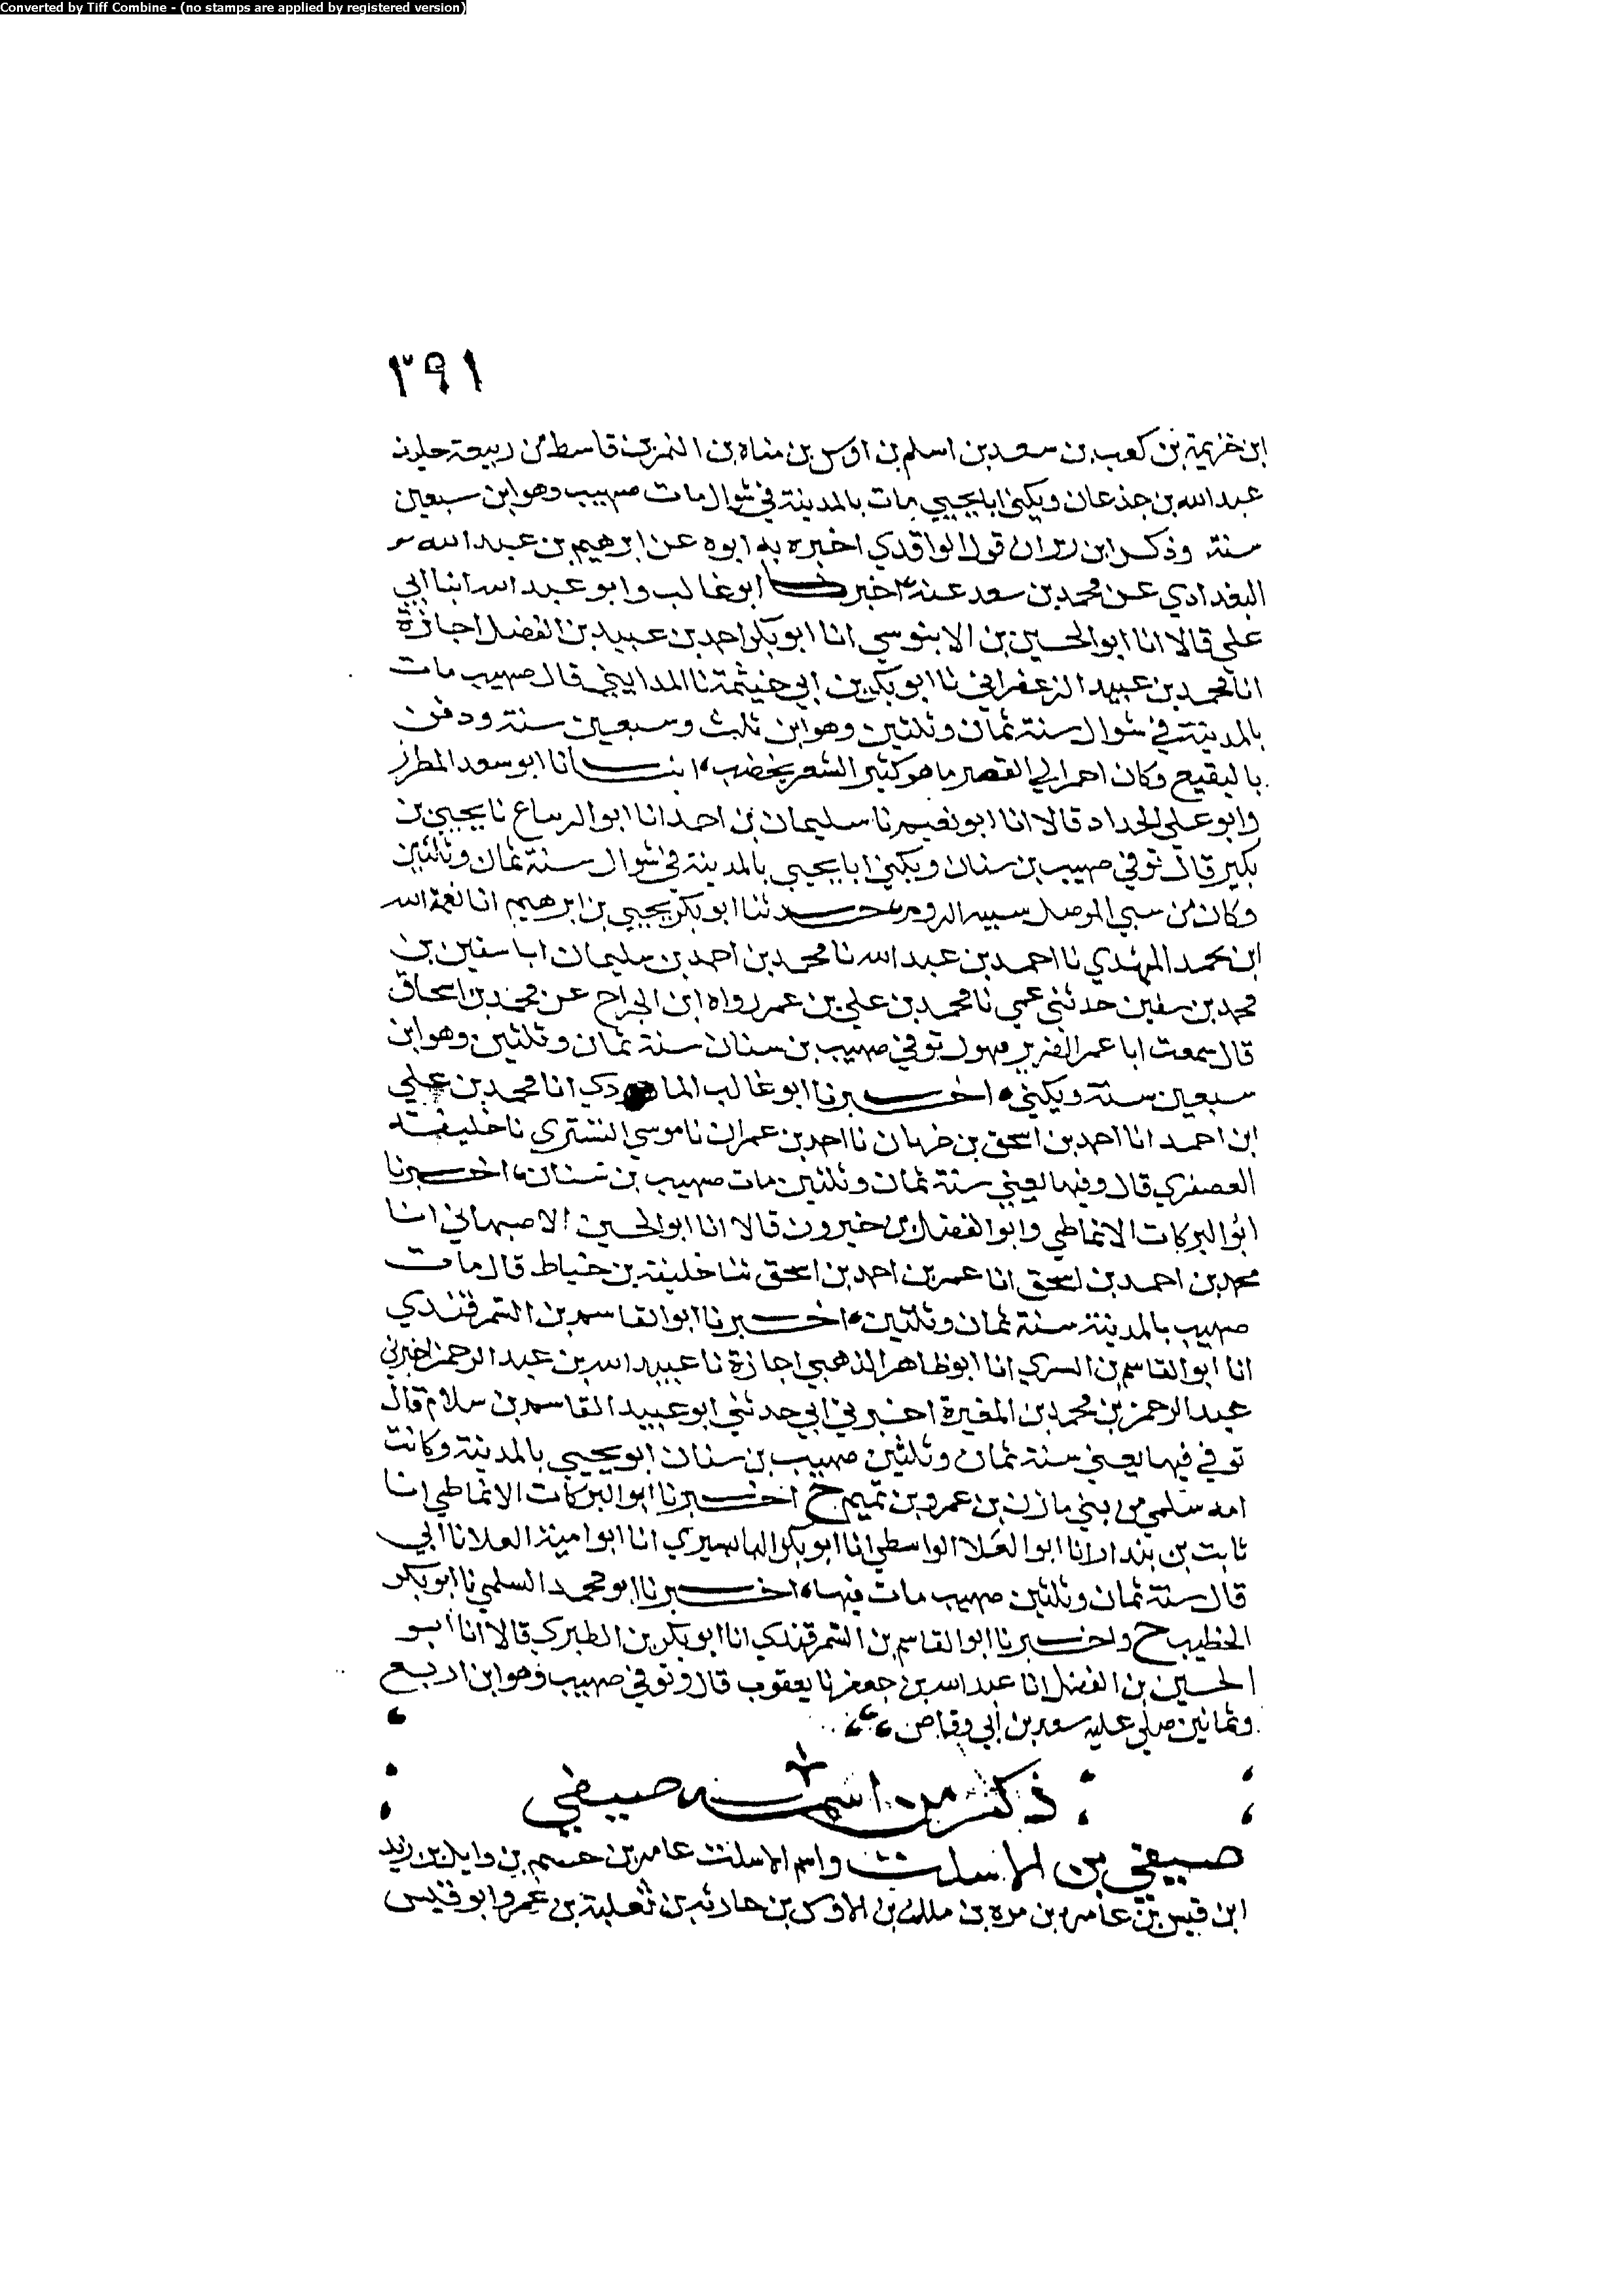 Converted by Tiff Combine - (no stamps are applied by registered version)
٣٩١
ابن خزيمة بن كعب بن سعد بن اسلم بن اوس بن مناه بن النمر بن قاسط من ربيعة حليف
عبدالله بن جذعان ويكنى ابا يحيي مات بالمدينة في شوال مات صهيب وهو ابن سبعين
سنة وذكر ابن ان قول الواقدي اخبره به ابوه عن ابرهيم بن عبدالله
البغدادي عن محمد بن سعد عنه اخبرنا ابو غالب وابو عبدالله ابنا ابي
علي قالا انا ابو الحسين بن الابنوسي انا ابو بكر احمد بن عبيد بن الفضل اجازة
انا محمد بن عبيد الزعفراني نا ابو بكر بن ابي خيثمة نا المدايني قال صهيب مات
بالمدينة في شوال سنة ثمان وثلثين وهو ابن ثلث وسبعين سنة ودفن
بالبقيع وكان احمر الي القصر ما هو كثير الشعر يخضب، انبانا ابو سعد المطرز
وابو علي الحداد قالا انا ابو نعيم نا سليمان بن احمد انا ابو الرساع نا يحيي بن
بكير قال توفي صهيب بن سنان ويكنى ابا يحيى بالمدينة في شوال سنة ثمان وثلثين
وكان من سبي الموصل سبيه الروم، حدثنا ابو بكر يحيي بن ابرهيم انا نعمة الله
ابن محمد المهدي نا احمد بن عبد الله نا محمد بن احمد بن سليمان ابا سفين بن
محمد بن سفين حدثني عمي نا محمد بن علي بن عمر رواه ابن الجراح عن محمد بن اسحاق
قال سمعت ابا عمر الضرير يقول توفي صهيب بن سنان سنة ثمان وثلثين وهو ابن
سبعين سنة ويكنى، اخبرنا ابو غالب الماوردي انا محمد بن علي
ابن احمد انا احمد بن اسحق بن خربان نا احمد بن عمران نا موسي التستري نا خليفة
العصفري قال وفيها يعني سنة ثمان وثلثين مات صهيب بن سنان، اخبرنا
ابو البركات الانماطي وابو الفضل بن خيرون قالا انا ابو الحسين الاصبهاني انا
محمد بن احمد بن اسحق انا عمر بن احمد بن اسحق ثنا خليفة بن خياط قال مات
صهيب بالمدينة سنة ثمان وثلثين، اخبرنا ابو القاسم بن السمرقندي
انا ابو القاسم بن السري انا ابو طاهر الذهبي اجازة نا عبيد الله بن عبد الرحمن اخبرني
عبد الرحمن بن محمد بن المغيرة اخبرني ابي حدثني ابو عبيد القاسم بن سلام قال
توفي فيها يعني سنة ثمان وثلثين صهيب بن سنان ابو يحيى بالمدينة وكانت
امه سلمي من بني مازن بن عمرو بن تميم ح اخبرنا ابو البركات الانماطي انا
ثابت بن بندار انا ابو العلا الواسطي انا ابو بكر البابسيري انا ابو امية العلا نا ابي
قال سنة ثمان وثلثين صهيب مات فيها، اخبرنا ابو محمد السلمي نا ابو بكر
الخطيب ح واخبرنا ابو القاسم بن السمرقندي انا ابو بكر بن الطبري قالا انا ابو
الحسين بن الفضل انا عبد الله بن جعفر نا يعقوب قال وتوفي صهيب وهو ابن اربع
وثمانين صلي عليه سعد بن ابي وقاص
ذكر من اسمه صيفي
صيفي بن الاسلت واسم الاسلت عامر بن جشم بن وايل بن زيد
ابن قيس بن عامر بن مره بن ملك بن الاوس بن حارثة بن ثعلبة بن عمرو ابو قيس